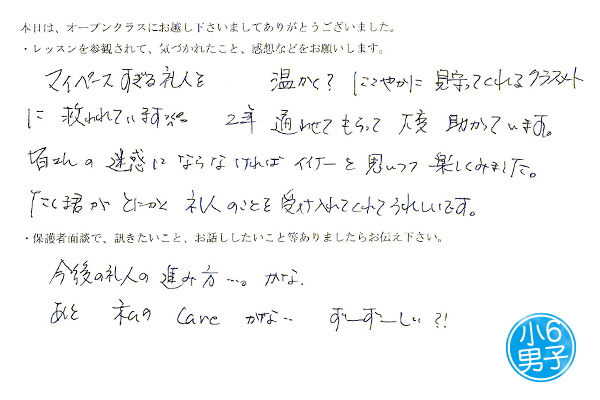 本日は、オープンクラスにお越し下さいましてありがとうございました。
・レッスンを参観されて、気づかれたこと、感想などをお願いします。
マイペースすぎる礼人を 温かく？にこやかに見守ってくれるクラスメート
に 救われています 2年 通わせてもらって 大変 助かっています。
皆さんの迷惑にならなければイイナーと思いつつ楽しくみました。
たく君がとにかく礼人のことを受け入れてくれてうれしいです。
・保護者面談で、訊きたいこと、お話ししたいこと等ありましたらお伝え下さい。
今後の礼人の進み方…。かな.
あと 私の care かな‥ ずーずーしい?!
小6
男子